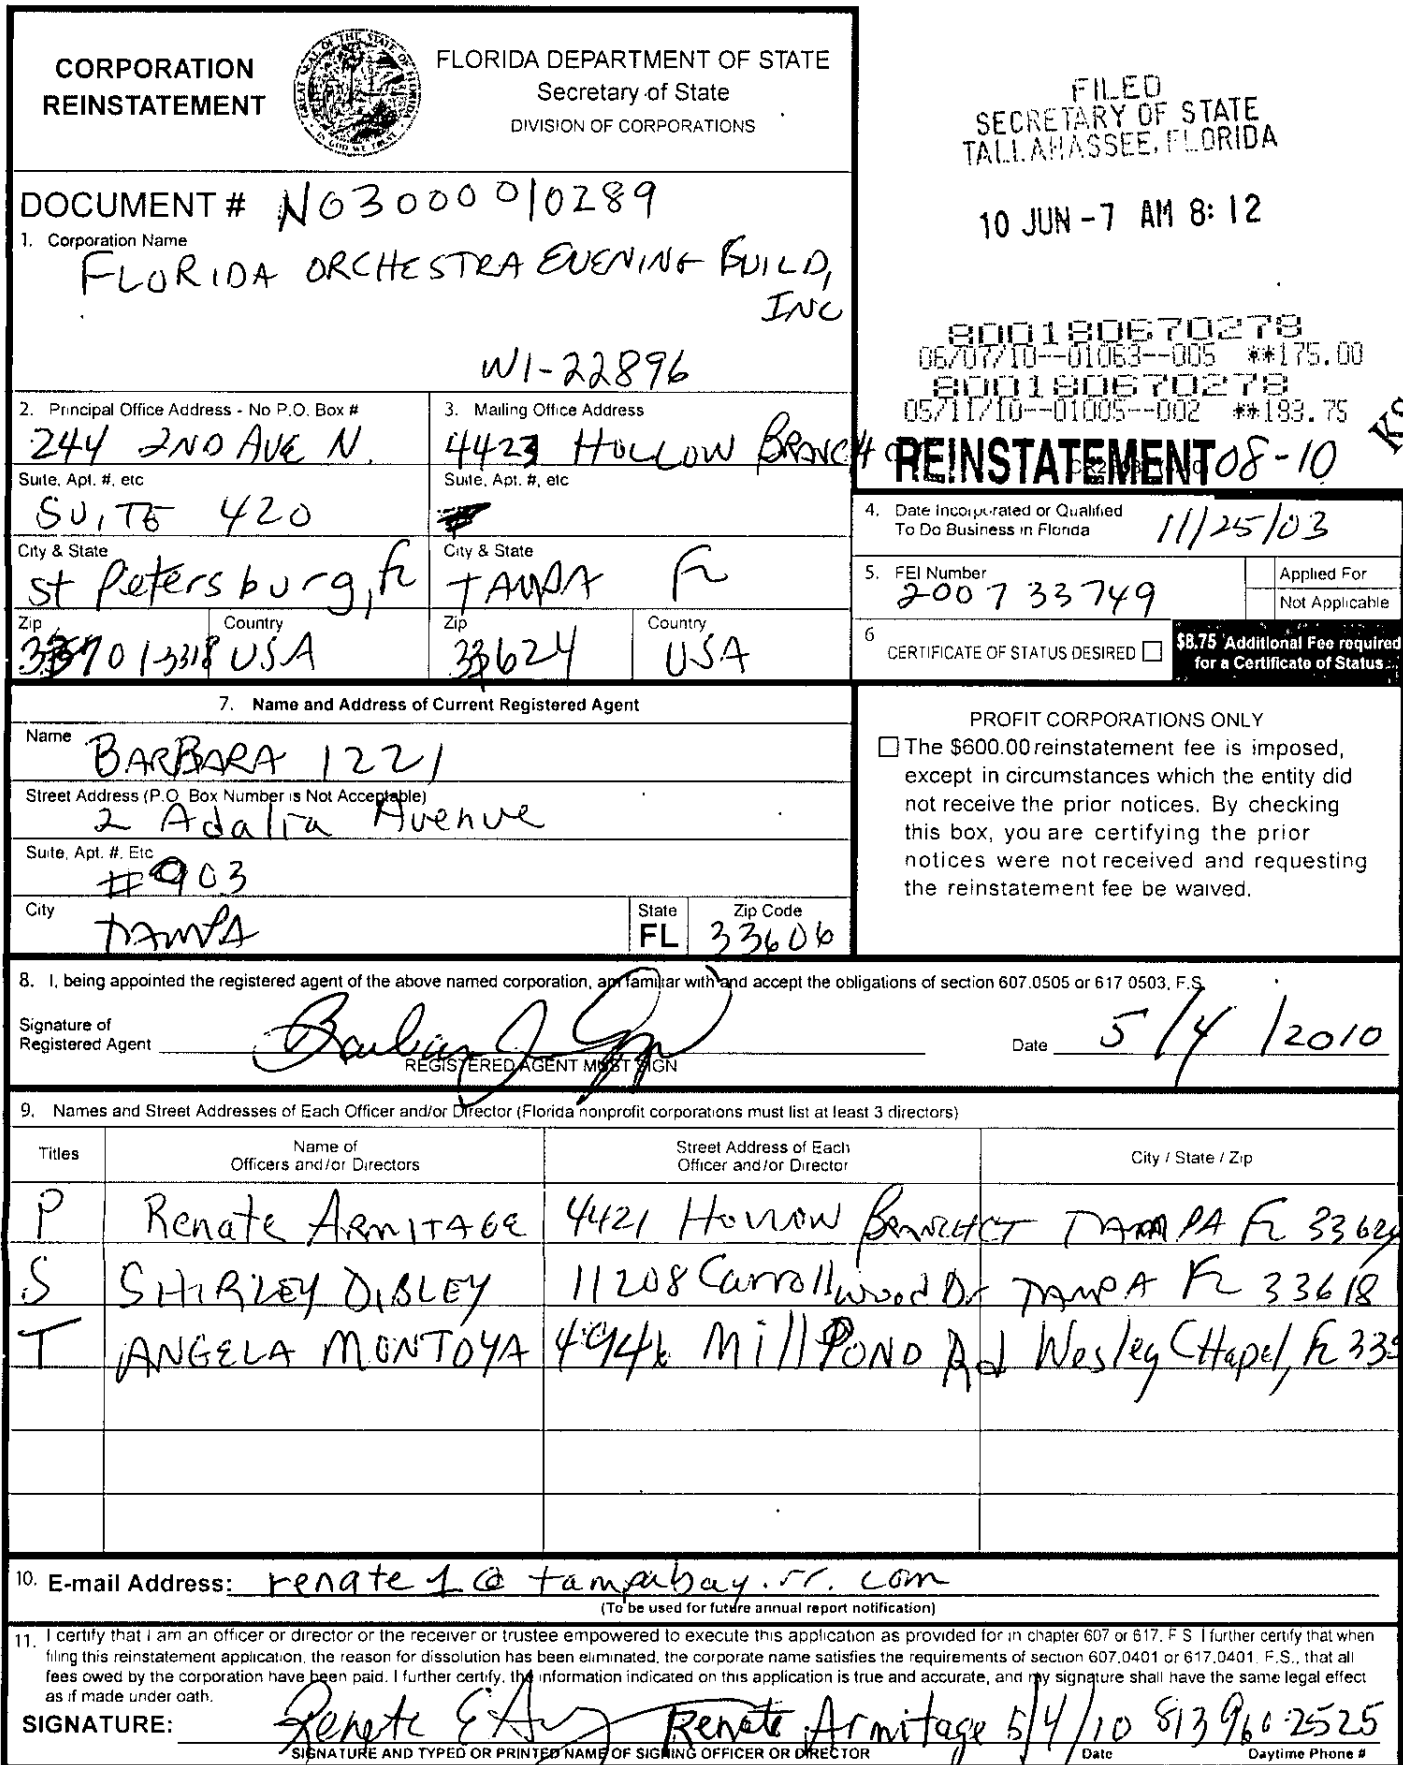 CORPORATION
REINSTATEMENT
FLORIDA DEPARTMENT OF STATE
Secretary of State
DIVISION OF CORPORATIONS
FILED
SECRETARY OF STATE
TALLAHASSEE, FLORIDA
10 JUN -7 AM 8: 12
DOCUMENT # N03000010289
1. Corporation Name
FLORIDA ORCHESTRA EVENING GUILD,
INC
W1-22896
800180670278
06/07/10--01063--005 **175.00
800180670278
05/11/10--01005--002 **193.75
KS
REINSTATEMENT 08-10
2. Principal Office Address - No P.O. Box #
244 2ND AVE N.
3. Mailing Office Address
4423 HOLLOW BRANCH
Suite, Apt. #, etc
SUITE 420
Suite, Apt. #, etc
City & State
St Petersburg, FL
City & State
TAMPA FL
Zip
33701-3318
Country
USA
Zip
33624
Country
USA
4. Date Incorporated or Qualified
To Do Business in Florida
11/25/03
5. FEI Number
200733749
Applied For
Not Applicable
6
CERTIFICATE OF STATUS DESIRED
$8.75 Additional Fee required
for a Certificate of Status
7. Name and Address of Current Registered Agent
Name
BARBARA 1221
Street Address (P.O. Box Number is Not Acceptable)
2 Adalia Avenue
Suite, Apt. #, Etc
#903
City
TAMPA
State
FL
Zip Code
33606
PROFIT CORPORATIONS ONLY
The $600.00 reinstatement fee is imposed,
except in circumstances which the entity did
not receive the prior notices. By checking
this box, you are certifying the prior
notices were not received and requesting
the reinstatement fee be waived.
8. I, being appointed the registered agent of the above named corporation, am familiar with and accept the obligations of section 607.0505 or 617 0503, F.S.
Signature of
Registered Agent
REGISTERED AGENT MUST SIGN
Date 5/4/2010
9. Names and Street Addresses of Each Officer and/or Director (Florida nonprofit corporations must list at least 3 directors)
Titles
Name of
Officers and/or Directors
Street Address of Each
Officer and/or Director
City / State / Zip
P Renate ARMITAGE 4421 HOLLOW BRANCH CT TAMPA FL 33624
S SHIRLEY DIBLEY 11208 Carrollwood Dr TAMPA FL 33618
T ANGELA MONTOYA 4946 Mill POND Rd Wesley CHapel, FL 335
10. E-mail Address: renate1@tampabay.rr.com
(To be used for future annual report notification)
11. I certify that I am an officer or director or the receiver or trustee empowered to execute this application as provided for in chapter 607 or 617, F S I further certify that when
filing this reinstatement application, the reason for dissolution has been eliminated, the corporate name satisfies the requirements of section 607.0401 or 617.0401, F.S., that all
fees owed by the corporation have been paid. I further certify, the information indicated on this application is true and accurate, and my signature shall have the same legal effect
as if made under oath.
SIGNATURE: Renate Armitage 5/4/10 813 960 2525
SIGNATURE AND TYPED OR PRINTED NAME OF SIGNING OFFICER OR DIRECTOR
Date
Daytime Phone #